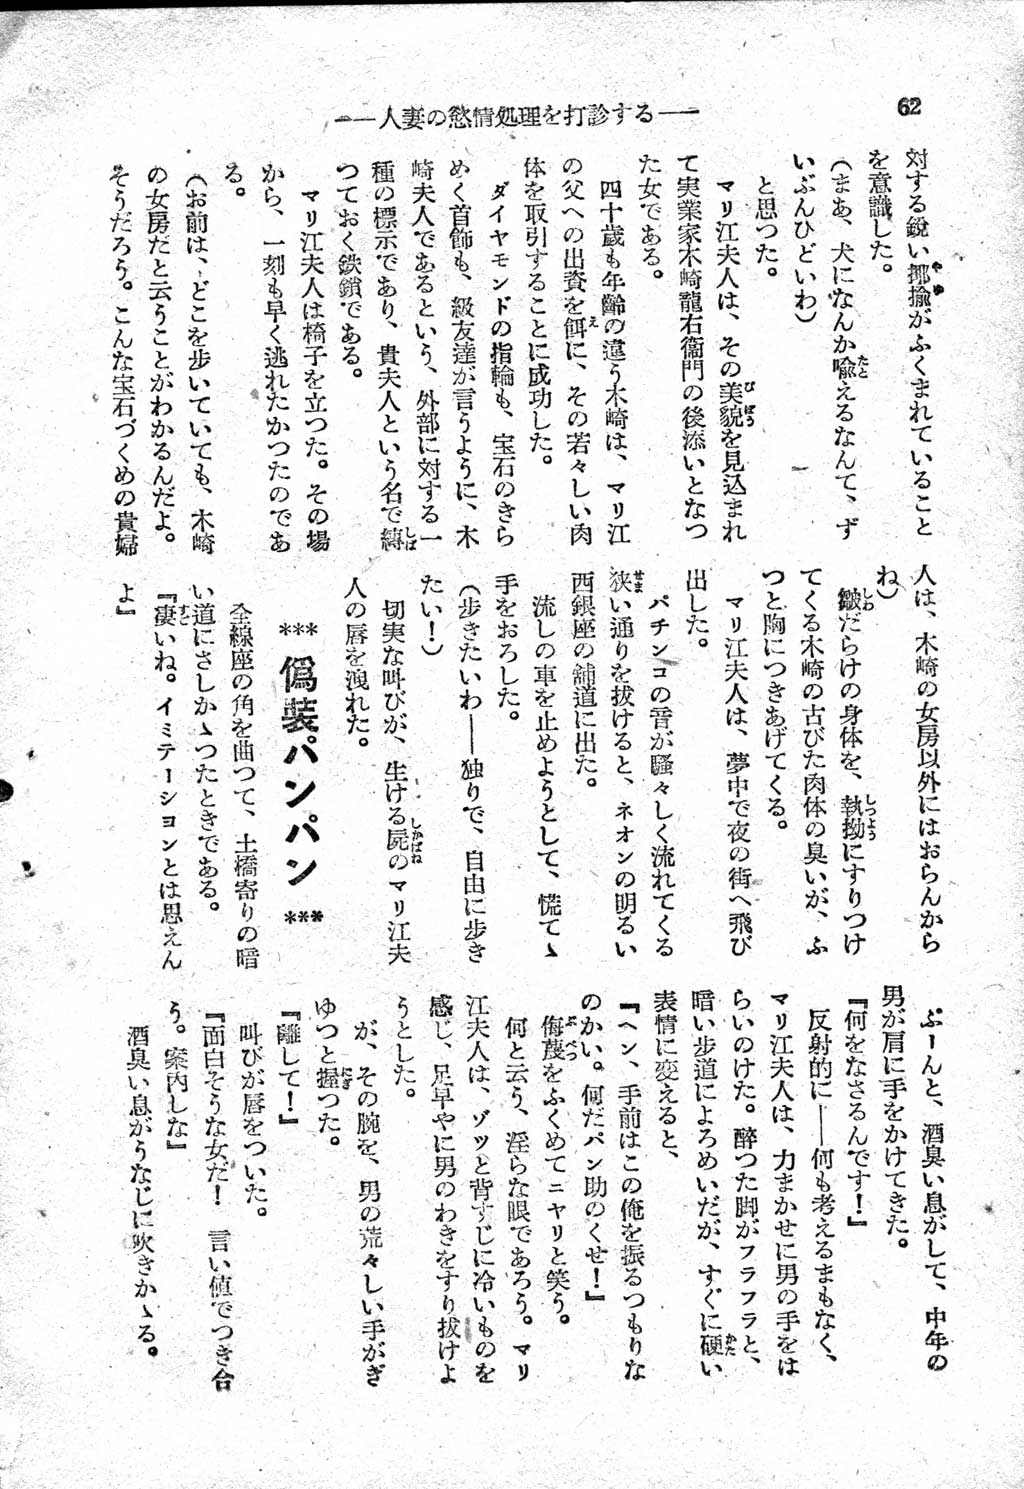 62
――人妻の慾情処理を打診する――
対する鋭い揶揄がふくまれていること
を意識した。
(まあ、犬になんか喩えるなんて、ず
いぶんひどいわ)
と思つた。
マリ江夫人は、その美貌を見込まれ
て実業家木崎龍右衞門の後添いとなつ
た女である。
四十歳も年齢の違う木崎は、マリ江
の父への出資を餌に、その若々しい肉
体を取引することに成功した。
ダイヤモンドの指輪も、宝石のきら
めく首飾も、級友達が言うように、木
崎夫人であるという、外部に対する一
種の標示であり、貴夫人という名で縛
つておく鉄鎖である。
マリ江夫人は椅子を立つた。その場
から、一刻も早く逃れたかつたのであ
る。
(お前は、どこを歩いていても、木崎
の女房だと云うことがわかるんだよ。
そうだろう。こんな宝石づくめの貴婦
人は、木崎の女房以外にはおらんから
ね)
皺だらけの身体を、執拗にすりつけ
てくる木崎の古びた肉体の臭いが、ふ
つと胸につきあげてくる。
マリ江夫人は、夢中で夜の街へ飛び
出した。
パチンコの音が騒々しく流れてくる
狭い通りを抜けると、ネオンの明るい
西銀座の舗道に出た。
流しの車を止めようとして、慌てゝ
手をおろした。
(歩きたいわ――独りで、自由に歩き
たい!)
切実な叫びが、生ける屍のマリ江夫
人の唇を洩れた。
*** 僞装パンパン ***
全線座の角を曲つて、土橋寄りの暗
い道にさしかゝつたときである。
『凄いね。イミテーションとは思えん
よ』
ぷーんと、酒臭い息がして、中年の
男が肩に手をかけてきた。
『何をなさるんです!』
反射的に――何も考えるまもなく、
マリ江夫人は、力まかせに男の手をは
らいのけた。酔つた脚がフラフラと、
暗い歩道によろめいだが、すぐに硬い
表情に変えると、
『ヘン、手前はこの俺を振るつもりな
のかい。何だパン助のくせ!』
侮蔑をふくめてニヤリと笑う。
何と云う、淫らな眼であろう。マリ
江夫人は、ゾッと背すじに冷いものを
感じ、足早やに男のわきをすり抜けよ
うとした。
が、その腕を、男の荒々しい手がぎ
ゆつと握つた。
『離して!』
叫びが唇をついた。
『面白そうな女だ! 言い値でつき合
う。案内しな』
酒臭い息がうなじに吹きかゝる。